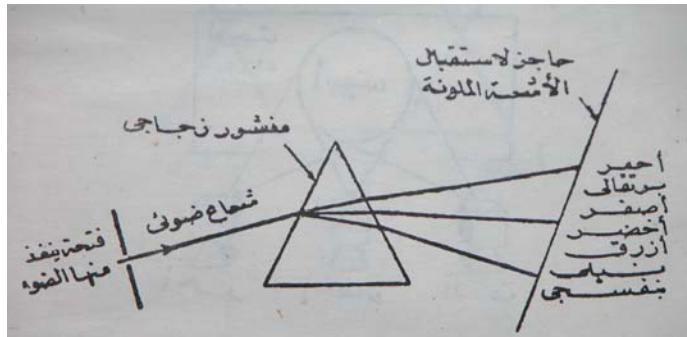 حاجز لاستقبال
الأشعة الملونة
مفشور زجاجى
شعاع ضوئى
فتحة ينفذ
منها الضوء
أحمر
برتقالى
أصفر
أخضر
أزرق
نيلى
بنفسجى